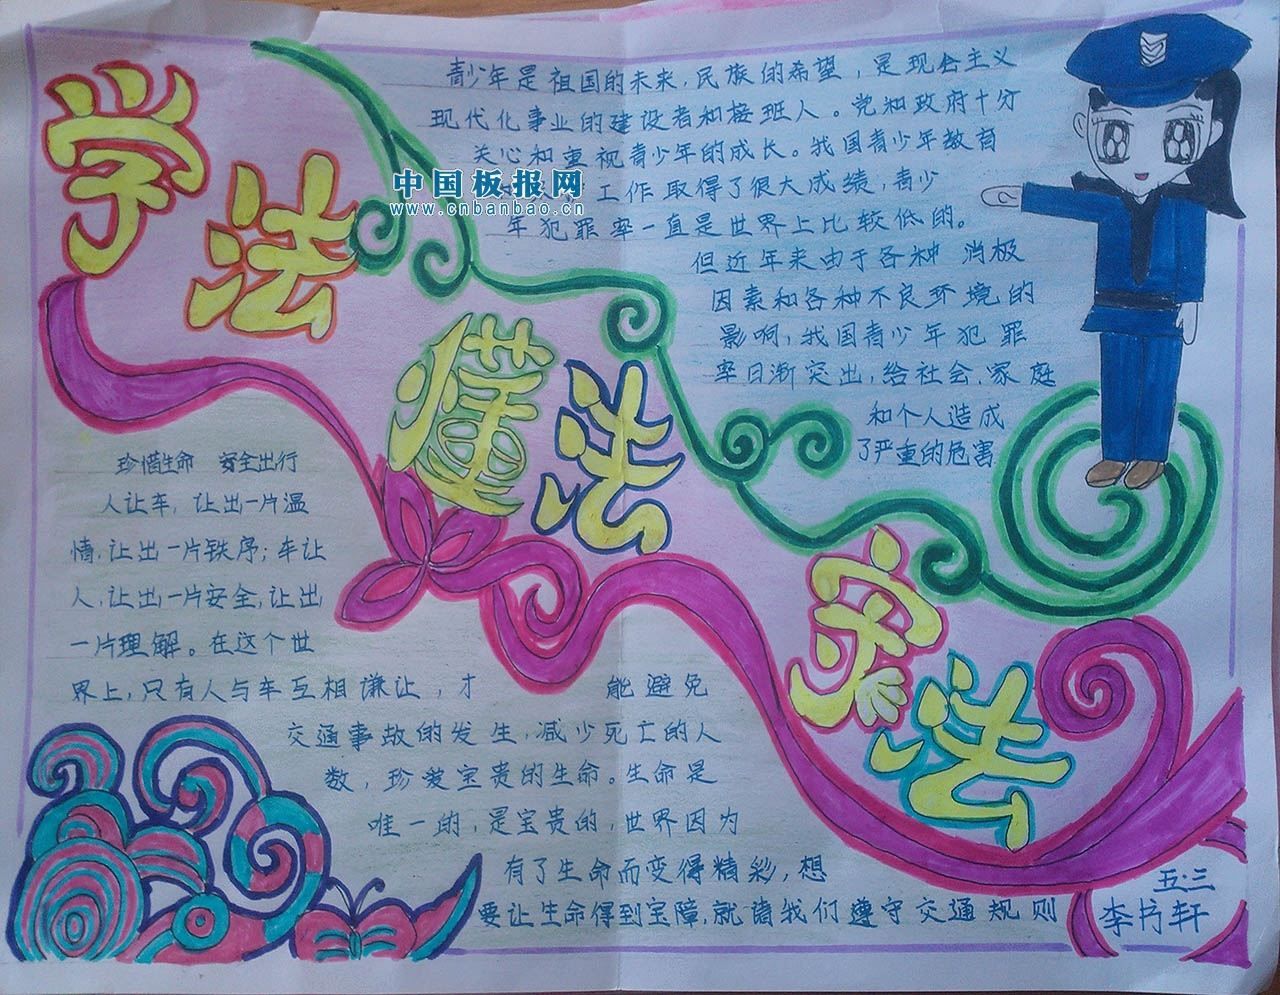 学法
懂法
守法
青少年是祖国的未来,民族的希望,是现会主义
现代化事业的建设者和接班人。党和政府十分
关心和重视青少年的成长。我国青少年教育
工作取得了很大成绩,青少
年犯罪率一直是世界上比较低的。
但近年来由于各种 消极
因素和各种不良环境的
影响,我国青少年犯罪
率日渐突出,给社会,家庭
和个人造成
了严重的危害
中国板报网
www.cnbanbao.cn
珍惜生命 安全出行
人让车,让出一片温
情,让出一片铁序;车让
人,让出一片安全,让出
一片理解。在这个世
界上,只有人与车互相谦让,才 能避免
交通事故的发生,减少死亡的人
数,珍爱宝贵的生命。生命是
唯一的,是宝贵的,世界因为
有了生命而变得精彩,想
要让生命得到宝障,就请我们遵守交通规则
五·三
李 轩